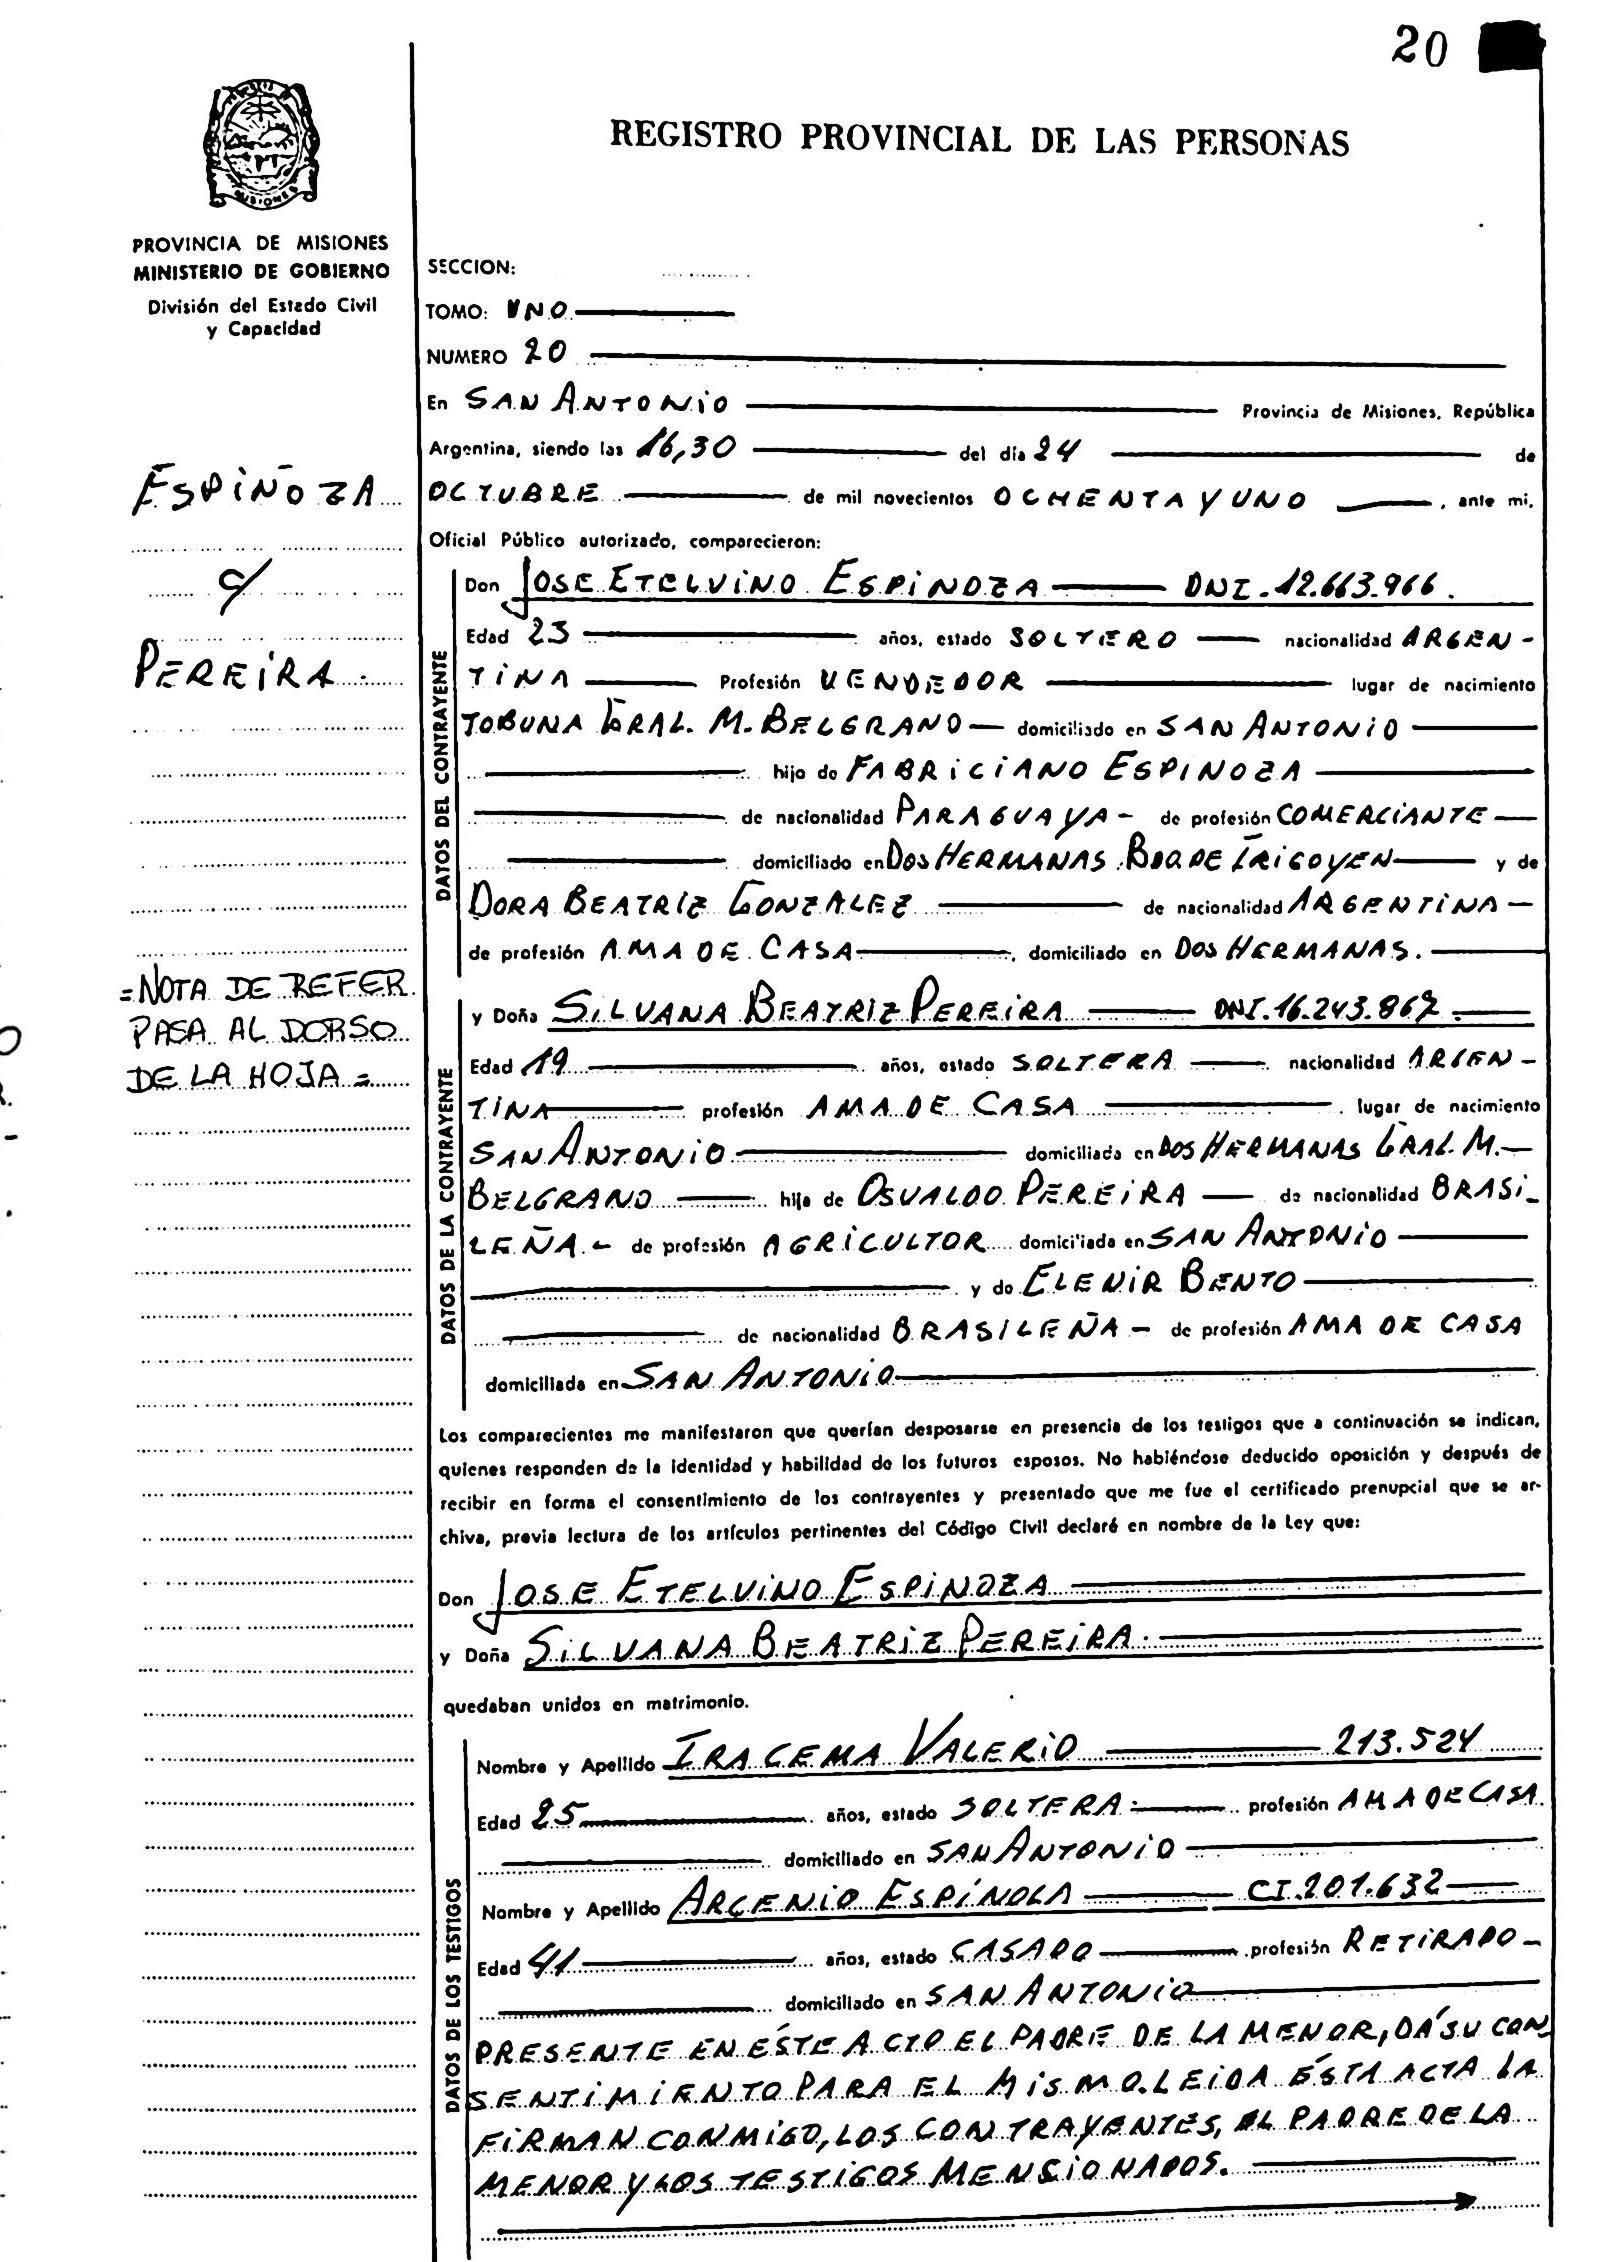 20
REGISTRO PROVINCIAL DE LAS PERSONAS
MISIONES
PROVINCIA DE MISIONES
MINISTERIO DE GOBIERNO
División del Estado Civil
y Capacidad
ESPIÑOZA
c/
PEREIRA.
=NOTA DE REFER
PASA AL DORSO
DE LA HOJA=
SECCION:
TOMO: UNO
NUMERO 20
En SAN ANTONIO Provincia de Misiones, República
Argentina, siendo las 16,30 del día 24 de
OCTUBRE de mil novecientos OCHENTA Y UNO, ante mi,
Oficial Público autorizado, comparecieron:
DATOS DEL CONTRAYENTE
Don JOSE ETELVINO ESPINOZA DNI.12.663.966.
Edad 23 años, estado SOLTERO nacionalidad ARGEN-
TINA Profesión VENDEDOR lugar de nacimiento
TOBUNA GRAL. M. BELGRANO domiciliado en SAN ANTONIO
hijo de FABRICIANO ESPINOZA
de nacionalidad PARAGUAYA- de profesión COMERCIANTE
domiciliado en DOS HERMANAS. BDO DE IRIGOYEN y de
DORA BEATRIZ GONZALEZ de nacionalidad ARGENTINA-
de profesión AMA DE CASA, domiciliado en DOS HERMANAS.
DATOS DE LA CONTRAYENTE
y Doña SILVANA BEATRIZ PEREIRA DNI.16.243.867.
Edad 19 años, estado SOLTERA nacionalidad ARGEN-
TINA profesión AMA DE CASA. lugar de nacimiento
SAN ANTONIO domiciliada en DOS HERMANAS GRAL. M.
BELGRANO hija de OSVALDO PEREIRA de nacionalidad BRASI-
LEÑA.- de profesión AGRICULTOR domiciliada en SAN ANTONIO
y de ELENIR BENTO
de nacionalidad BRASILEÑA- de profesión AMA DE CASA
domiciliada en SAN ANTONIO
Los comparecientes me manifestaron que querían desposarse en presencia de los testigos que a continuación se indican,
quienes responden de la identidad y habilidad de los futuros esposos. No habiéndose deducido oposición y después de
recibir en forma el consentimiento de los contrayentes y presentado que me fue el certificado prenupcial que se ar-
chiva, previa lectura de los artículos pertinentes del Código Civil declaré en nombre de la Ley que:
Don JOSE ETELVINO ESPINOZA
y Doña SILVANA BEATRIZ PEREIRA.
quedaban unidos en matrimonio.
DATOS DE LOS TESTIGOS
Nombre y Apellido IRACEMA VALERIO 213.524
Edad 25 años, estado SOLTERA. profesión AMA DE CASA
domiciliado en SAN ANTONIO
Nombre y Apellido ARGENIO ESPÍNOLA CI.201.632
Edad 41 años, estado CASADO profesión RETIRADO-
domiciliado en SAN ANTONIO
PRESENTE EN ÉSTE ACTO EL PADRE DE LA MENOR, DÁ SU CON
SENTIMIENTO PARA EL MISMO. LEIDA ÉSTA ACTA LA
FIRMAN CONMIGO, LOS CONTRAYENTES, EL PADRE DE LA
MENOR Y LOS TESTIGOS MENSIONADOS.